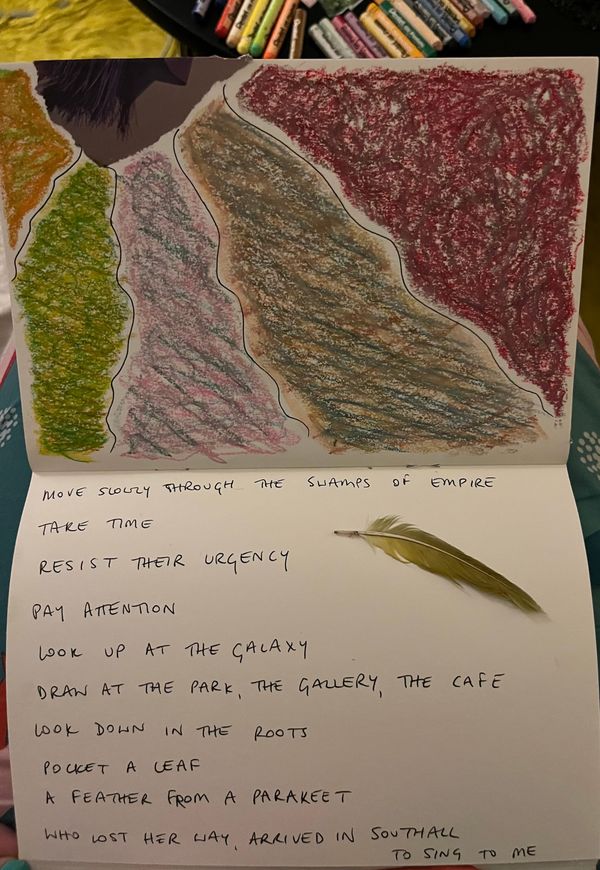 MOVE SLOWLY THROUGH THE SWAMPS OF EMPIRE
TAKE TIME
RESIST THEIR URGENCY
PAY ATTENTION
LOOK UP AT THE GALAXY
DRAW AT THE PARK, THE GALLERY, THE CAFE
LOOK DOWN IN THE ROOTS
POCKET A LEAF
A FEATHER FROM A PARAKEET
WHO LOST HER WAY, ARRIVED IN SOUTHALL
TO SING TO ME